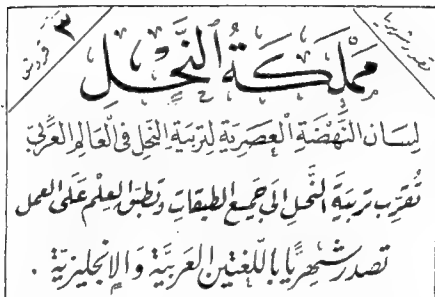 تصدر شهريا
٣ قروش
مَمْلَكَةُ النَّحْلِ
لِسَان النَّهْضَةِ الْعَصْرِيَّةِ لِتَرْبِيَةِ النَّحْلِ فِي الْعَالَمِ الْعَرَبِيّ
تُقَرِّب تَرْبِيَةَ النَّحْلِ إِلَى جَمِيعِ الطَّبَقَاتِ وَتُطَبِّق الْعِلْمَ عَلَى الْعَمَل
تصدر شَهْرِيًّا بِاللُّغَتَيْنِ الْعَرَبِيَّةِ وَالْإِنْجِلِيزِيَّةِ .